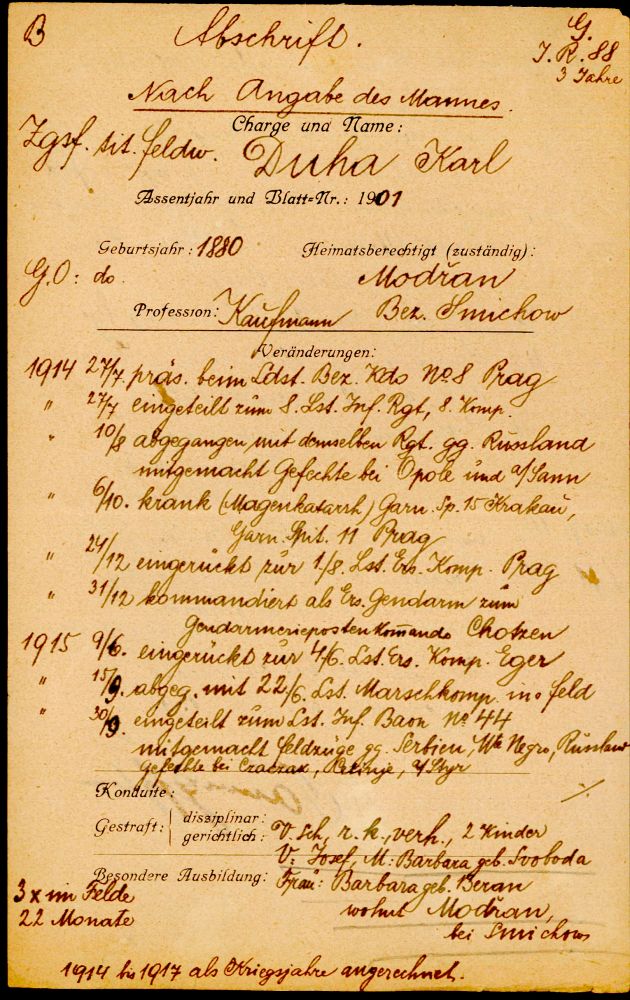 B
Abschrift.
G.
I. R. 88
3 Jahre
Nach Angabe des Mannes.
Charge und Name:
Zgsf. tit. feldw. Duha Karl
Assentjahr und Blatt=Nr.: 1901
Geburtsjahr: 1880 Heimatsberechtigt (zuständig):
G.O: do Modřan
Profession: Kaufmann Bez. Smichow
Veränderungen:
1914 27/7. präs. beim Ldst. Bez. Kdo No 8 Prag
" 27/7 eingeteilt zum 8. Lst. Inf. Rgt, 8. Komp.
" 10/8 abgegangen mit demselben Rgt. gg. Russland
mitgemacht Gefechte bei Opole und a/Sann
" 6/10. krank (Magenkatarrh) Garn. Sp. 15 Krakau,
Garn. Spit. 11 Prag
" 24/12 eingerückt zur 1/8. Lst. Ers. Komp. Prag
" 31/12 kommandiert als Ers. Gendarm zum
Gendarmeriepostenkommando Chotzen
1915 9/6. eingerückt zur 4/6. Lst. Ers. Komp. Eger
" 15/9. abgeg. mit 22/6. Lst. Marschkomp. ins feld
" 30/9 eingeteilt zum Lst. Inf. Baon No 44
mitgemacht feldzüge gg. Serbien, Mte Negro, Russland
gefechte bei Czaczak, a/Styr
Konduite: ./.
Gestraft: disziplinar:
gerichtlich: V. Sch, r. k., verh., 2 Kinder
V: Josef, M: Barbara geb. Svoboda
Besondere Ausbildung: Frau: Barbara geb. Beran
3 x im Felde
wohnt Modřan,
22 Monate
bei Smichow
1914 bis 1917 als Kriegsjahre angerechnet.